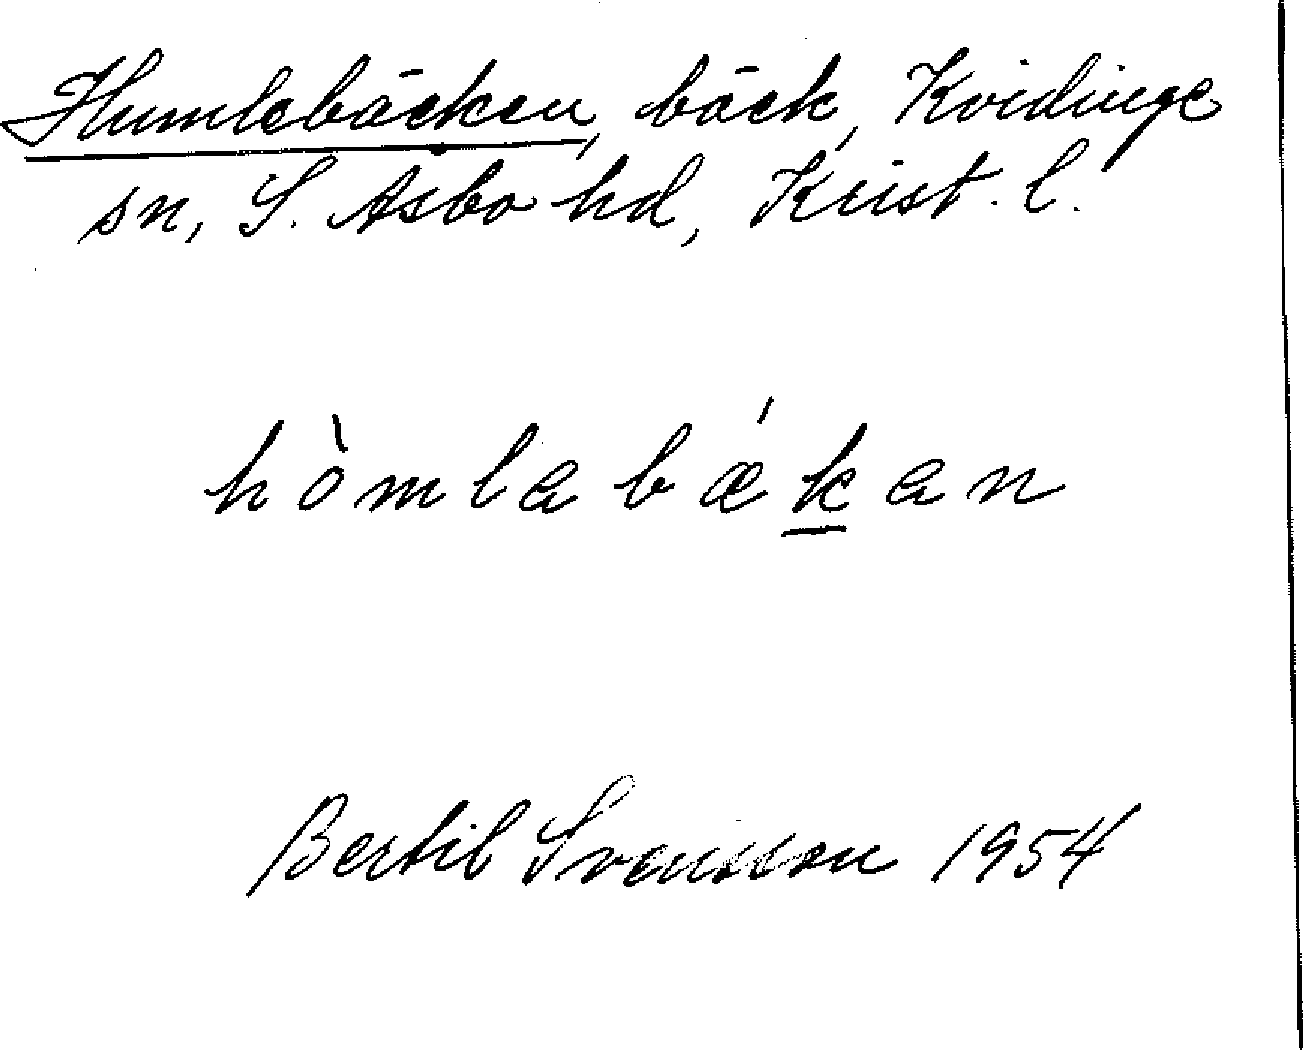 Humlebäcken, bäck, Kvidinge
sn, S. Åsbo hd, Krist. l.
hòmlabǽk̲an
Bertil Svensson 1954